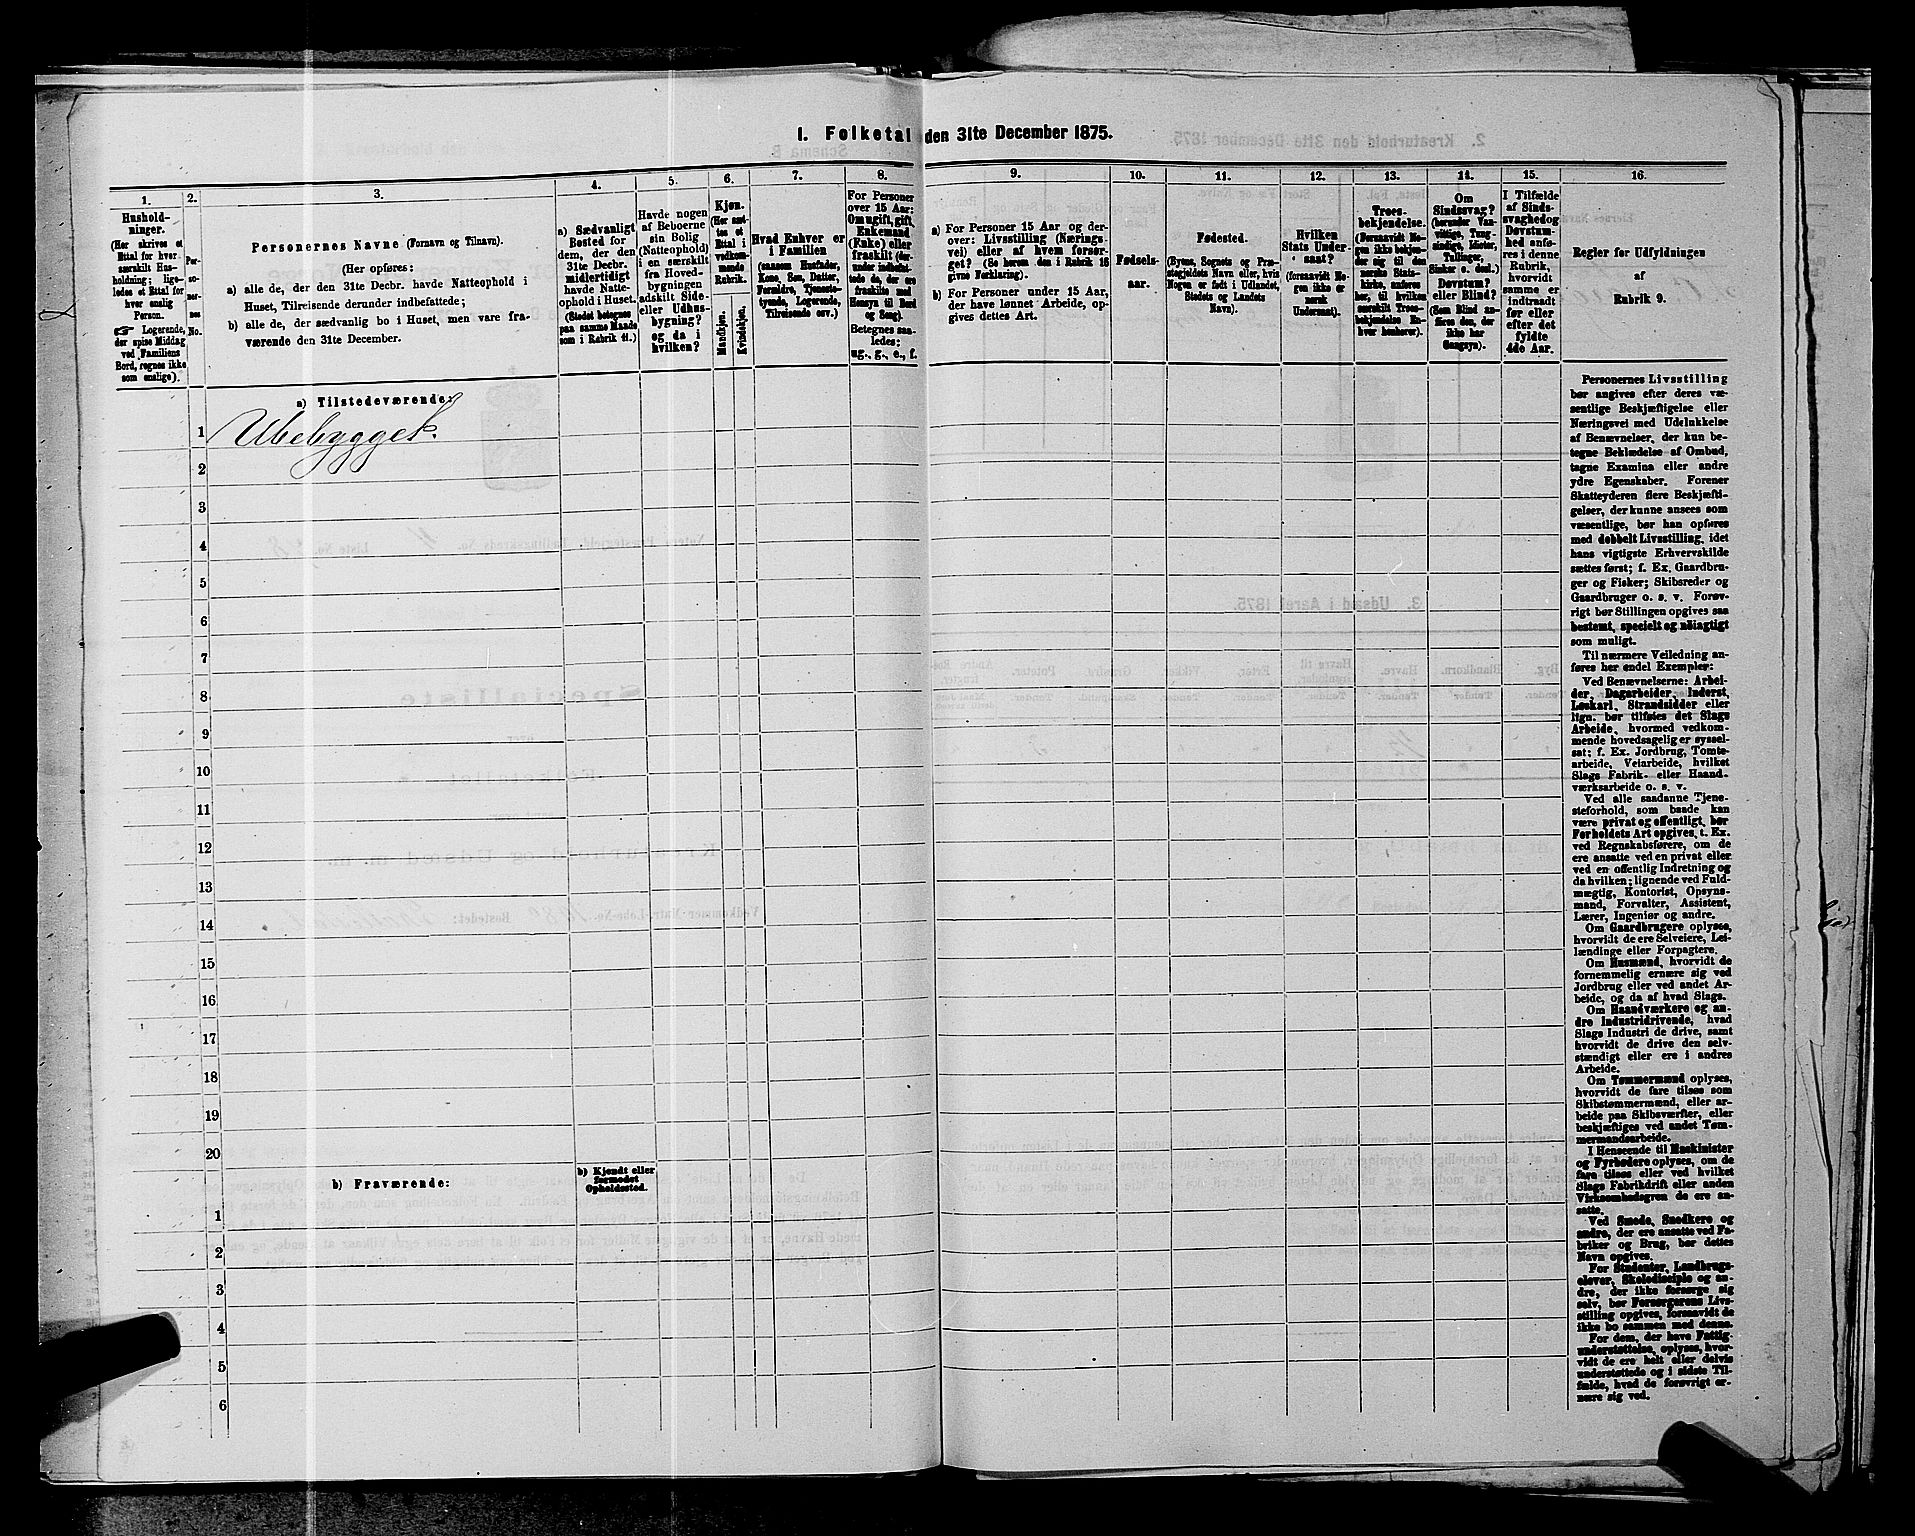 1. Folketal den 31te December 1875.
1.
Hushold-
ninger.
(Her skrives et
Ettal for hver
særskilt Hus-
holdning; lige-
ledes et Ettal for
hver enslig
Person.
☞ Logerende,
der spise Middag
ved Familiens
Bord, regnes ikke
som enslige).
2.
Per-
so-
ner-
nes
No.
3.
Personernes Navne (Fornavn og Tilnavn).
(Her opføres:
a) alle de, der den 31te Decbr. havde Natteophold i
Huset, Tilreisende derunder indbefattede;
b) alle de, der sædvanlig bo i Huset, men vare fra-
værende den 31te December.
4.
a) Sædvanligt
Bosted for
dem, der den
31te Decbr.
midlertidigt
havde Natte-
ophold i Huset.
(Stedet betegnes
paa samme Maade
som i Rubrik 11.)
5.
Havde nogen
af Beboerne
sin Bolig
(Natteophold)
i en særskilt
fra Hoved-
bygningen
adskilt Side-
eller Udhus-
bygning?
og da i
hvilken?
6.
Kjøn.
(Her sæt-
tes et
Ettal i
vedkom-
mende
Rubrik.
Mandkjøn.
Kvindekjøn.
7.
Hvad Enhver er
i Familien
(saasom Husfader,
Kone, Søn, Datter,
Forældre, Tjeneste-
tyende, Logerende,
Tilreisende osv.)
8.
For Personer
over 15 Aar:
Om ugift, gift,
Enkemand
(Enke) eller
fraskilt (der-
under indbefat-
tede de, der ere
fraskilte med
Hensyn til Bord
og Seng).
Betegnes saa-
ledes:
ug., g., e., f.
9.
a) For Personer 15 Aar og der-
over: Livsstilling (Nærings-
vei) eller af hvem forsør-
get? (Se herom den i Rubrik 16
givne Forklaring).
b) For Personer under 15 Aar,
der have lønnet Arbeide, op-
gives dettes Art.
10.
Fødsels-
aar.
11.
Fødested.
(Byens, Sognets og Præ-
stegjeldets Navn eller, hvis
Nogen er født i Udlandet,
Stedets og Landets
Navn).
12.
Hvilken
Stats Under-
saat?
(forsaavidt No-
gen ikke er
norsk
Undersaat).
13.
Troes-
bekjendelse.
(Forsaavidt No-
gen ikke bekjen-
der sig til den
norske Stats-
kirke, anføres
her, til hvilken
særskilt Troes-
bekjendelse En-
hver henhører).
14.
Om
Sindssvag?
(herunder Van-
vittige, Tung-
sindige, Idioter,
Tullinger,
Sinker o. desl.)
Døvstum?
eller Blind?
(Som Blind an-
føres den, der
ikke har
Gangsyn).
15.
I Tilfælde
af Sinds-
svaghed og
Døvstum-
hed anfø-
res i denne
Rubrik,
hvorvidt
samme er
indtraadt
før eller
efter det
fyldte
4de Aar.
16.
Regler for Udfyldningen
af
Rubrik 9.
a) Tilstedeværende:
1 Ubebygget.
2
3
4
5
6
7
8
9
10
11
12
13
14
15
16
17
18
19
20
b) Fraværende:
b) Kjendt eller
formodet
Opholdssted.
1
2
3
4
5
6
Personernes Livsstilling
bør angives efter deres væ-
sentlige Beskjæftigelse eller
Næringsvei med Udelukkelse
af Benævnelser, der kun be-
tegne Beklædelse af Ombud,
tagne Examina eller andre
ydre Egenskaber. Forener
Skatteyderen flere Beskjæfti-
gelser, der kunne ansees som
væsentlige, bør han opføres
med dobbelt Livsstilling, idet
hans vigtigste Erhvervskilde
sættes først; f. Ex. Gaardbru-
ger og Fisker; Skibsreder og
Gaardbruger o. s. v. Forøv-
rigt bør Stillingen opgives saa
bestemt, specielt og nøiagtigt
som muligt.
Til nærmere Veiledning an-
føres her endel Exempler:
Ved Benævnelserne: Arbei-
der, Dagarbeider, Inderst,
Løskarl, Strandsidder eller
lign. bør tilføies det Slags
Arbeide, hvormed vedkom-
mende hovedsagelig er syssel-
sat; f. Ex. Jordbrug, Tomte-
arbeide, Veiarbeide, hvilket
Slags Fabrik- eller Haand-
værksarbeide o. s. v.
Ved alle saadanne Tjene-
steforhold, som baade kan
være privat og offentligt, bør
Forholdets Art opgives, t. Ex.
ved Regnskabsførere, om de
ere ansatte ved en privat eller
ved en offentlig Indretning og
da hvilken; lignende ved Fuld-
mægtig, Kontorist, Opsyns-
mand, Forvalter, Assistent,
Lærer, Ingeniør og andre.
Om Gaardbrugere oplyses,
hvorvidt de ere Selveiere, Lei-
lændinge eller Forpagtere.
Om Husmænd, hvorvidt de
fornemmelig ernære sig ved
Jordbrug eller ved andet Ar-
beide, og da af hvad Slags.
Om Haandværkere og an-
dre Industridrivende, hvad
Slags Industri de drive, samt
hvorvidt de drive den selv-
stændigt eller ere i andres
Arbeide.
Om Tømmermænd oplyses,
hvorvidt de fare tilsøs som
Skibstømmermænd, eller ar-
beide paa Skibsværfter, eller
beskjæftiges ved andet Tøm-
mermandsarbeide.
I Henseende til Maskinister
og Fyrbødere oplyses, om de
fare tilsøs eller ved hvilket
Slags Fabrikdrift eller anden
Virksomhedsgren de ere an-
satte.
Ved Smede, Snedkere og
andre, der ere ansatte ved Fa-
briker og Brug, bør dettes
Navn opgives.
For Studenter, Landbrugs-
elever, Skoledisciple og an-
dre, der ikke forsørge sig
selv, bør Forsørgerens Livs-
stilling opgives, forsaavidt de
ikke bo sammen med denne.
For dem, der have Fattig-
understøttelse, oplyses, hvor-
vidt de ere helt eller delvis
understøttede og i sidste Til-
fælde, hvad de forøvrigt er-
nære sig ved.